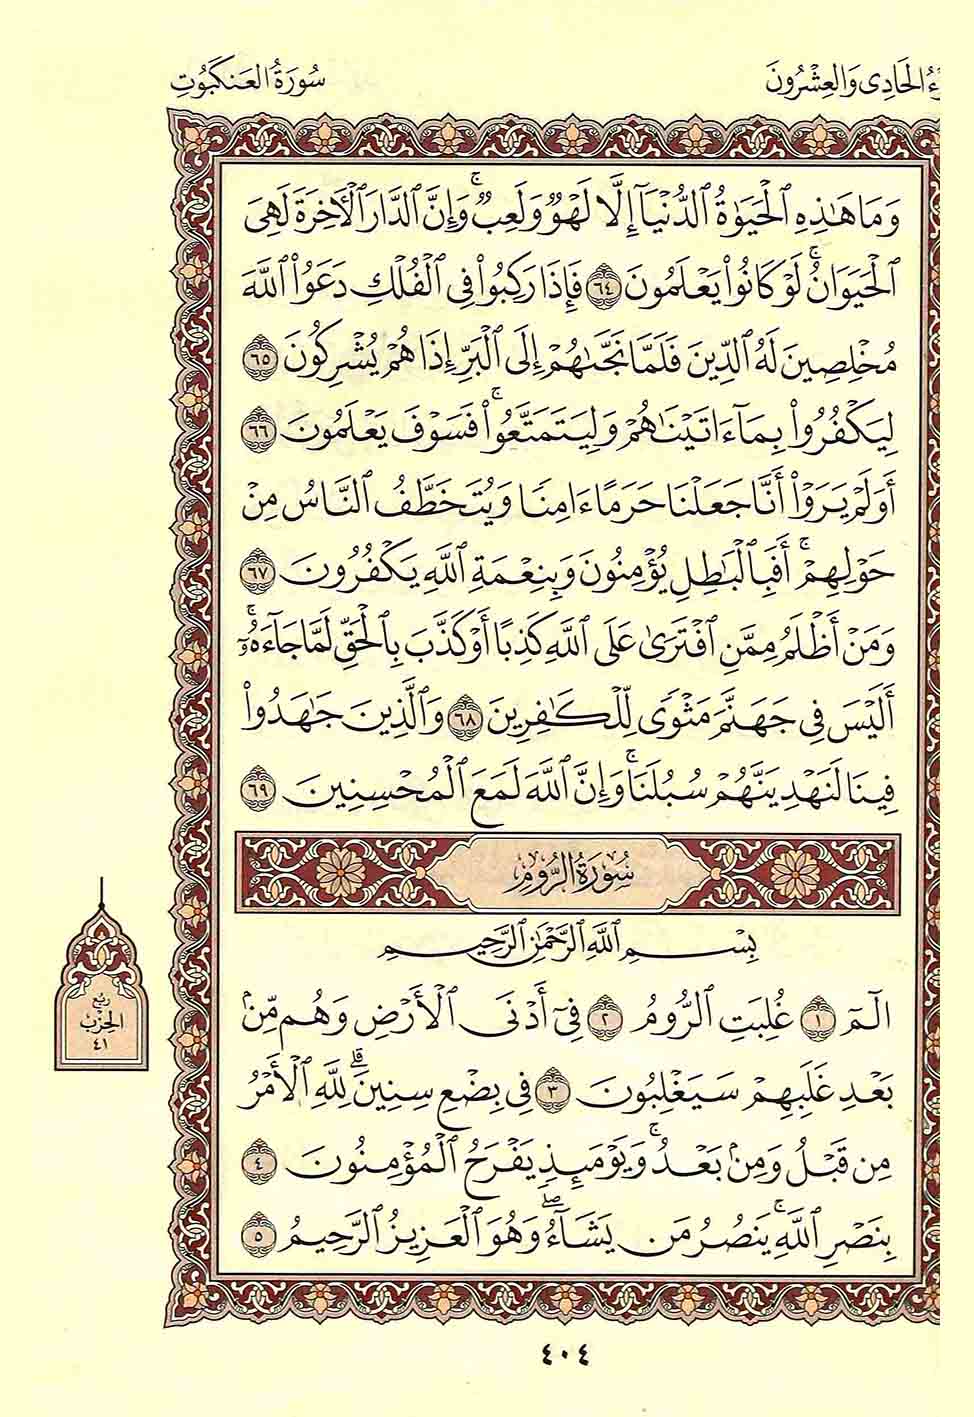 ـزءُ الحَادِى وَالعِشْرُونَ
سُورَةُ العَنكَبُوتِ
وَمَا هَٰذِهِ ٱلْحَيَوٰةُ ٱلدُّنْيَآ إِلَّا لَهْوٌ وَلَعِبٌ ۚ وَإِنَّ ٱلدَّارَ ٱلْأَخِرَةَ لَهِىَ
ٱلْحَيَوَانُ ۚ لَوْ كَانُوا۟ يَعْلَمُونَ ٦٤ فَإِذَا رَكِبُوا۟ فِى ٱلْفُلْكِ دَعَوُا۟ ٱللَّهَ
مُخْلِصِينَ لَهُ ٱلدِّينَ فَلَمَّا نَجَّىٰهُمْ إِلَى ٱلْبَرِّ إِذَا هُمْ يُشْرِكُونَ ٦٥
لِيَكْفُرُوا۟ بِمَآ ءَاتَيْنَٰهُمْ وَلِيَتَمَتَّعُوا۟ ۚ فَسَوْفَ يَعْلَمُونَ ٦٦
أَوَلَمْ يَرَوْا۟ أَنَّا جَعَلْنَا حَرَمًا ءَامِنًا وَيُتَخَطَّفُ ٱلنَّاسُ مِنْ
حَوْلِهِمْ ۚ أَفَبِٱلْبَٰطِلِ يُؤْمِنُونَ وَبِنِعْمَةِ ٱللَّهِ يَكْفُرُونَ ٦٧
وَمَنْ أَظْلَمُ مِمَّنِ ٱفْتَرَىٰ عَلَى ٱللَّهِ كَذِبًا أَوْ كَذَّبَ بِٱلْحَقِّ لَمَّا جَآءَهُۥٓ ۚ
أَلَيْسَ فِى جَهَنَّمَ مَثْوًى لِّلْكَٰفِرِينَ ٦٨ وَٱلَّذِينَ جَٰهَدُوا۟
فِينَا لَنَهْدِيَنَّهُمْ سُبُلَنَا ۚ وَإِنَّ ٱللَّهَ لَمَعَ ٱلْمُحْسِنِينَ ٦٩
سُورَةُ الرُّومِ
بِسْمِ ٱللَّهِ ٱلرَّحْمَٰنِ ٱلرَّحِيمِ
الٓمٓ ١ غُلِبَتِ ٱلرُّومُ ٢ فِىٓ أَدْنَى ٱلْأَرْضِ وَهُم مِّنۢ
بَعْدِ غَلَبِهِمْ سَيَغْلِبُونَ ٣ فِى بِضْعِ سِنِينَ ۗ لِلَّهِ ٱلْأَمْرُ
مِن قَبْلُ وَمِنۢ بَعْدُ ۚ وَيَوْمَئِذٍ يَفْرَحُ ٱلْمُؤْمِنُونَ ٤
بِنَصْرِ ٱللَّهِ ۚ يَنصُرُ مَن يَشَآءُ ۖ وَهُوَ ٱلْعَزِيزُ ٱلرَّحِيمُ ٥
رُبُع
الحِزْب
٤١
٤٠٤